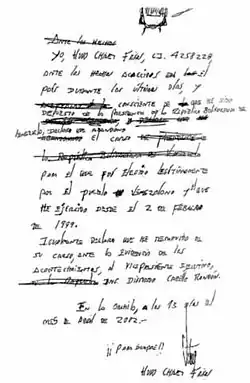 Ante los hechos
Yo, Hugo Chávez Frías, C.I. 4258228
ante los hechos acaecidos en el
país durante los últimos días y
consciente de que he sido
depuesto de la Presidencia de la República Bolivariana de
Venezuela, declaro que abandono
el cargo de
la República Bolivariana de
para el que fui electo legítimamente
por el pueblo Venezolano y que
he ejercido desde el 2 de febrero
de 1999.
Igualmente declaro que he removido de
su cargo, ante la evidencia de los
acontecimientos, al Vicepresidente Ejecutivo,
Ing. Diosdado Cabello Rondón.
En la a los 13 días del
mes de abril de 2002.-
¡¡Para siempre!!
Hugo Chávez Frías